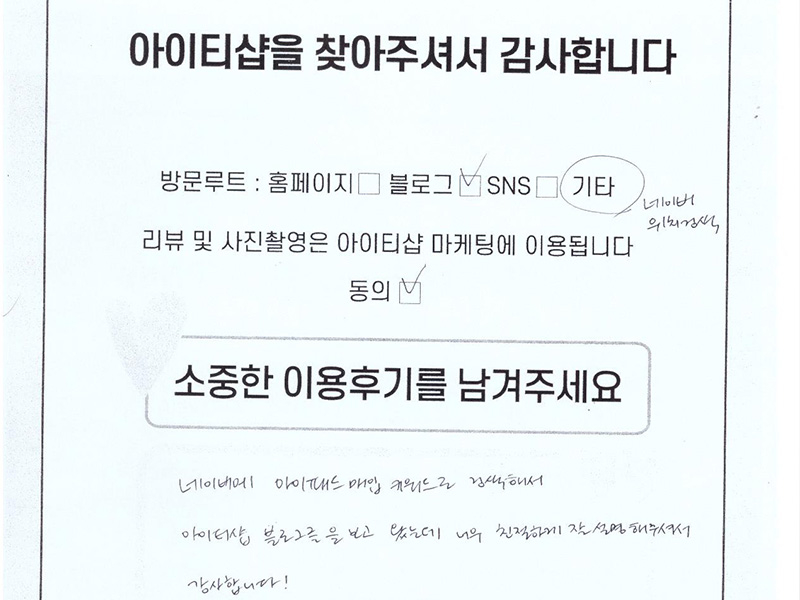 아이티샵을 찾아주셔서 감사합니다
방문루트 : 홈페이지□ 블로그☑ SNS□ 기타
네이버
위치검색
리뷰 및 사진촬영은 아이티샵 마케팅에 이용됩니다
동의☑
소중한 이용후기를 남겨주세요
네이버에 아이패드 매입 키워드로 검색해서
아이티샵 블로그를 보고 왔는데 너무 친절하게 잘 설명해주셔서
감사합니다!